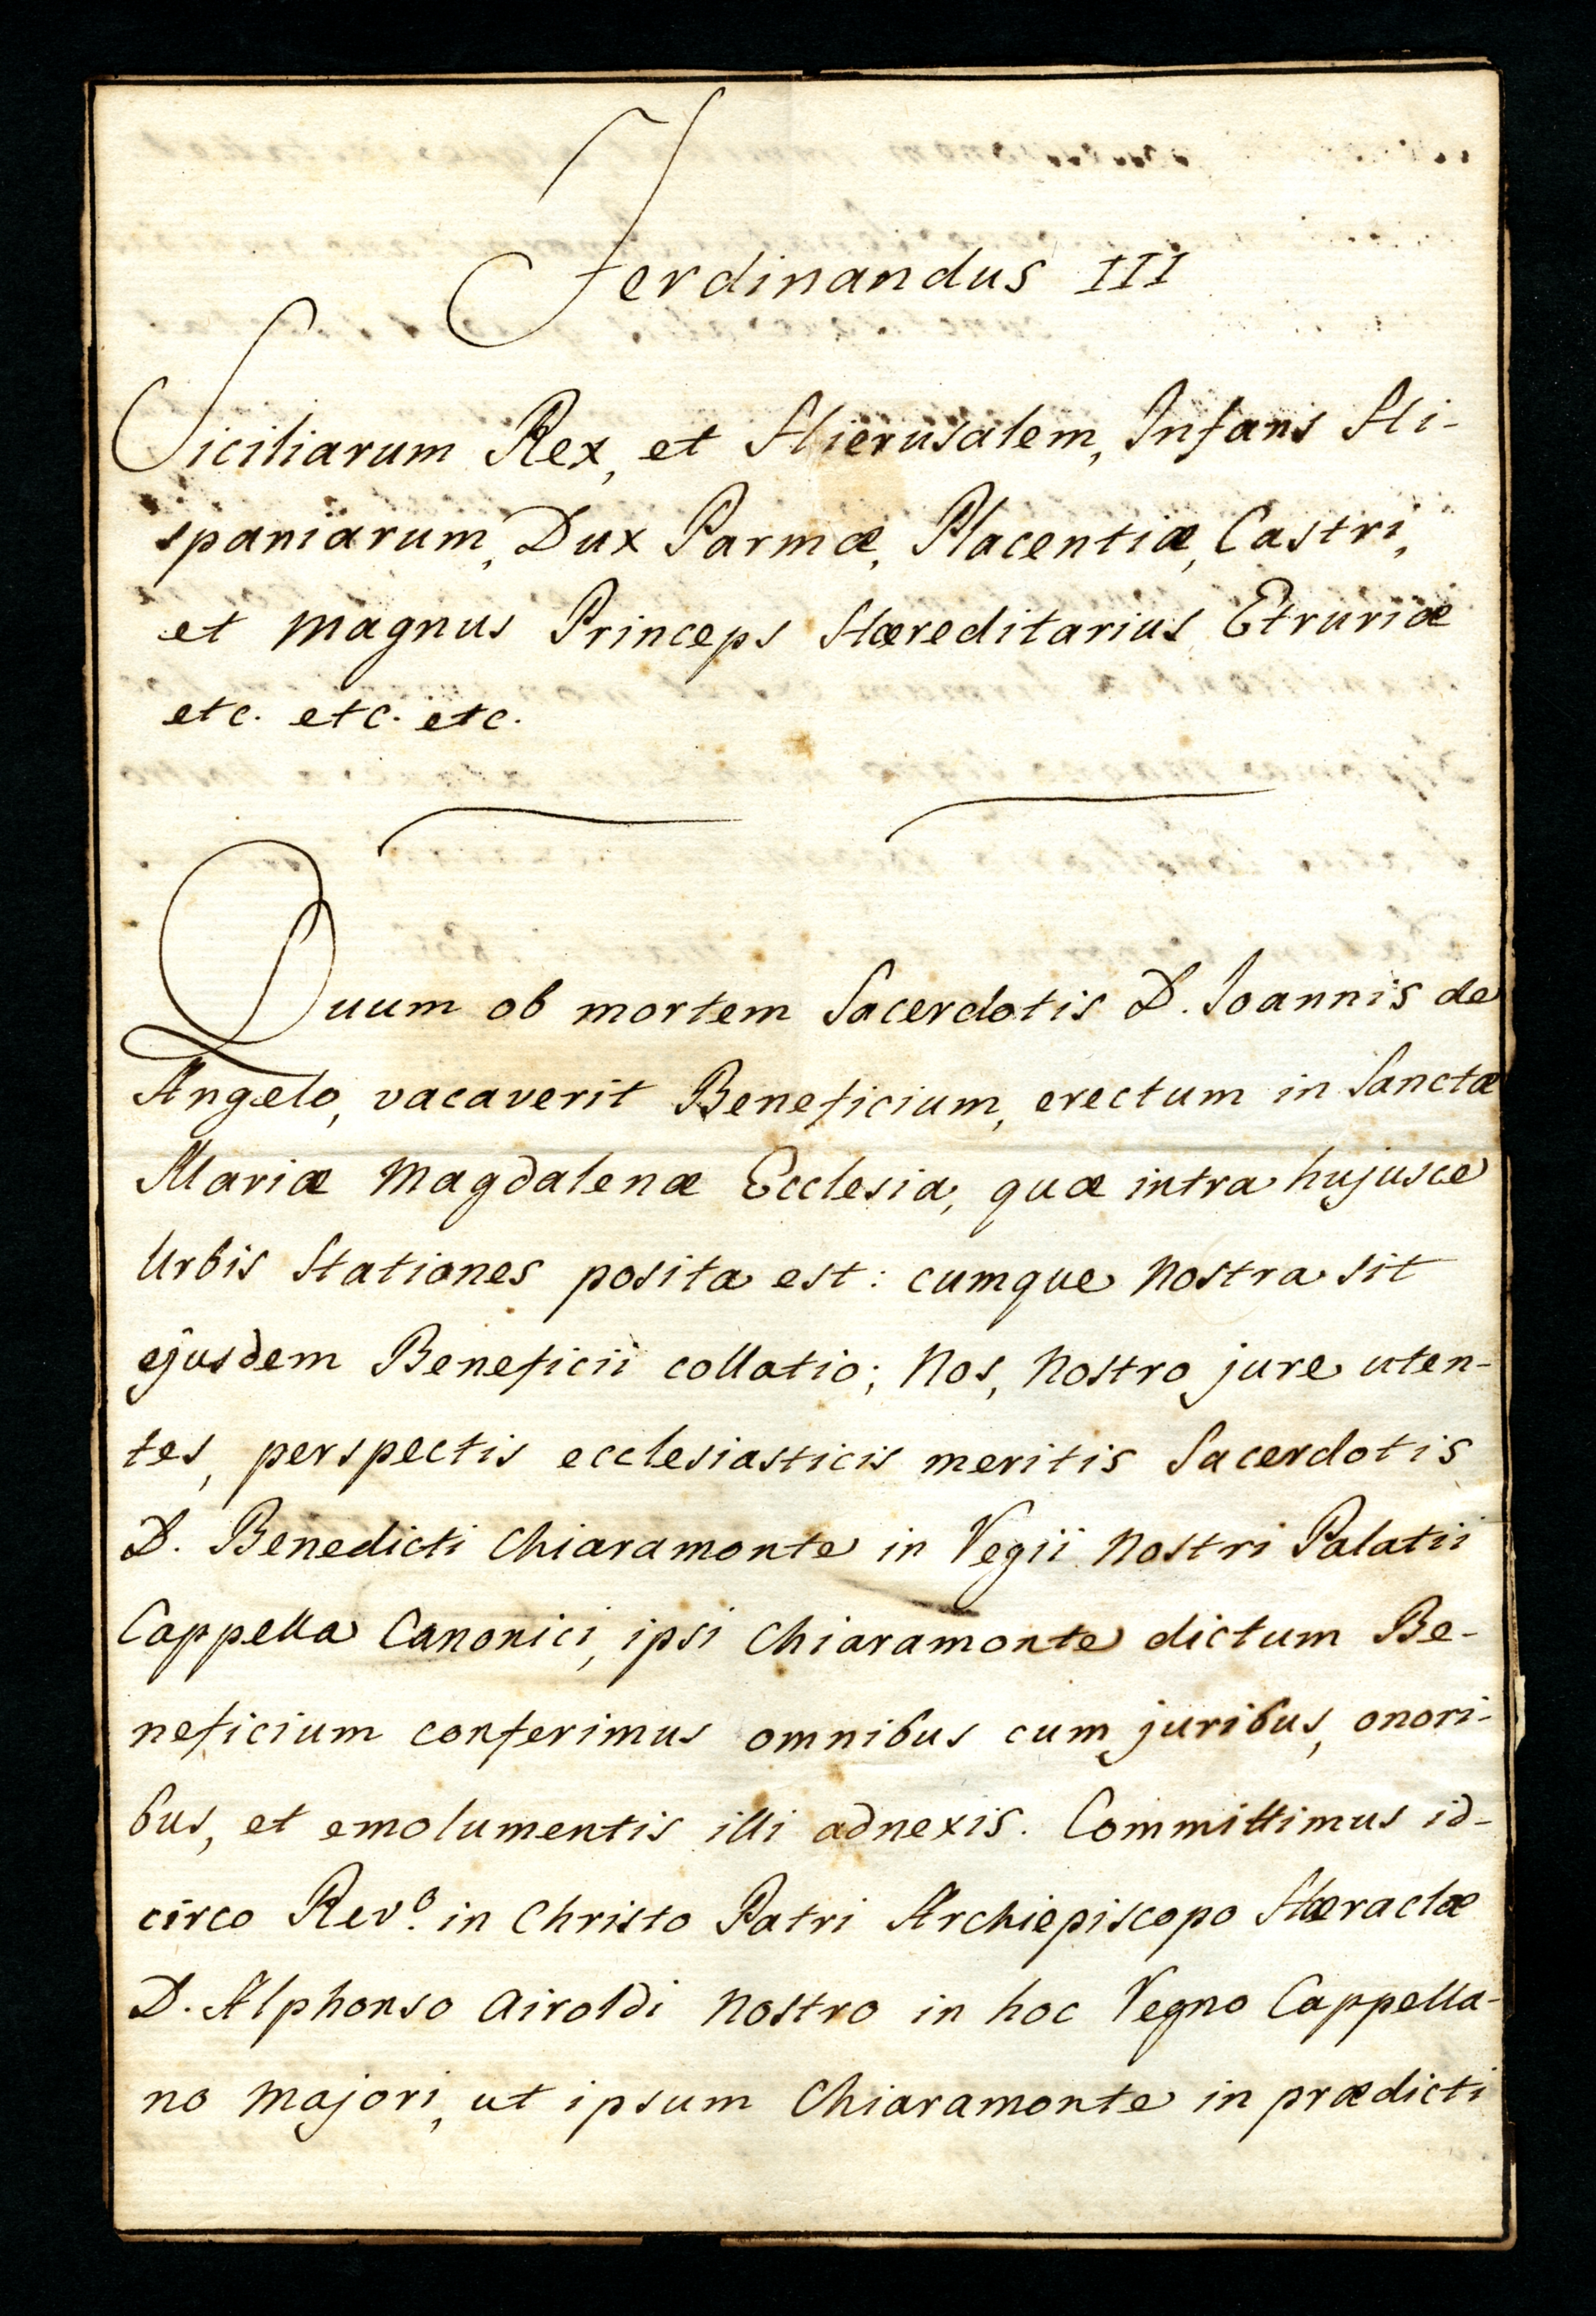 Ferdinandus III
Siciliarum Rex, et Hierusalem, Infans Hi-
spaniarum, Dux Parmæ, Placentiæ, Castri,
et Magnus Princeps Hæreditarius Etruriæ
etc. etc. etc.
Quum ob mortem Sacerdotis D. Ioannis de
Angelo, vacaverit Beneficium, erectum in Sanctæ
Mariæ Magdalenæ Ecclesia, quæ intra hujusce
Urbis Stationes posita est: cumque Nostra sit
ejusdem Beneficii collatio; Nos, Nostro jure uten-
tes, perspectis ecclesiasticis meritis Sacerdotis
D. Benedicti Chiaramonte in Regii Nostri Palatii
Cappella Canonici, ipsi Chiaramonte dictum Be-
neficium conferimus omnibus cum juribus, onori-
bus, et emolumentis illi adnexis. Committimus id-
circo Rev.º in Christo Patri Archiepiscopo Hæraclæ
D. Alphonso Airoldi Nostro in hoc Regno Cappella-
no Majori, ut ipsum Chiaramonte in prædicti